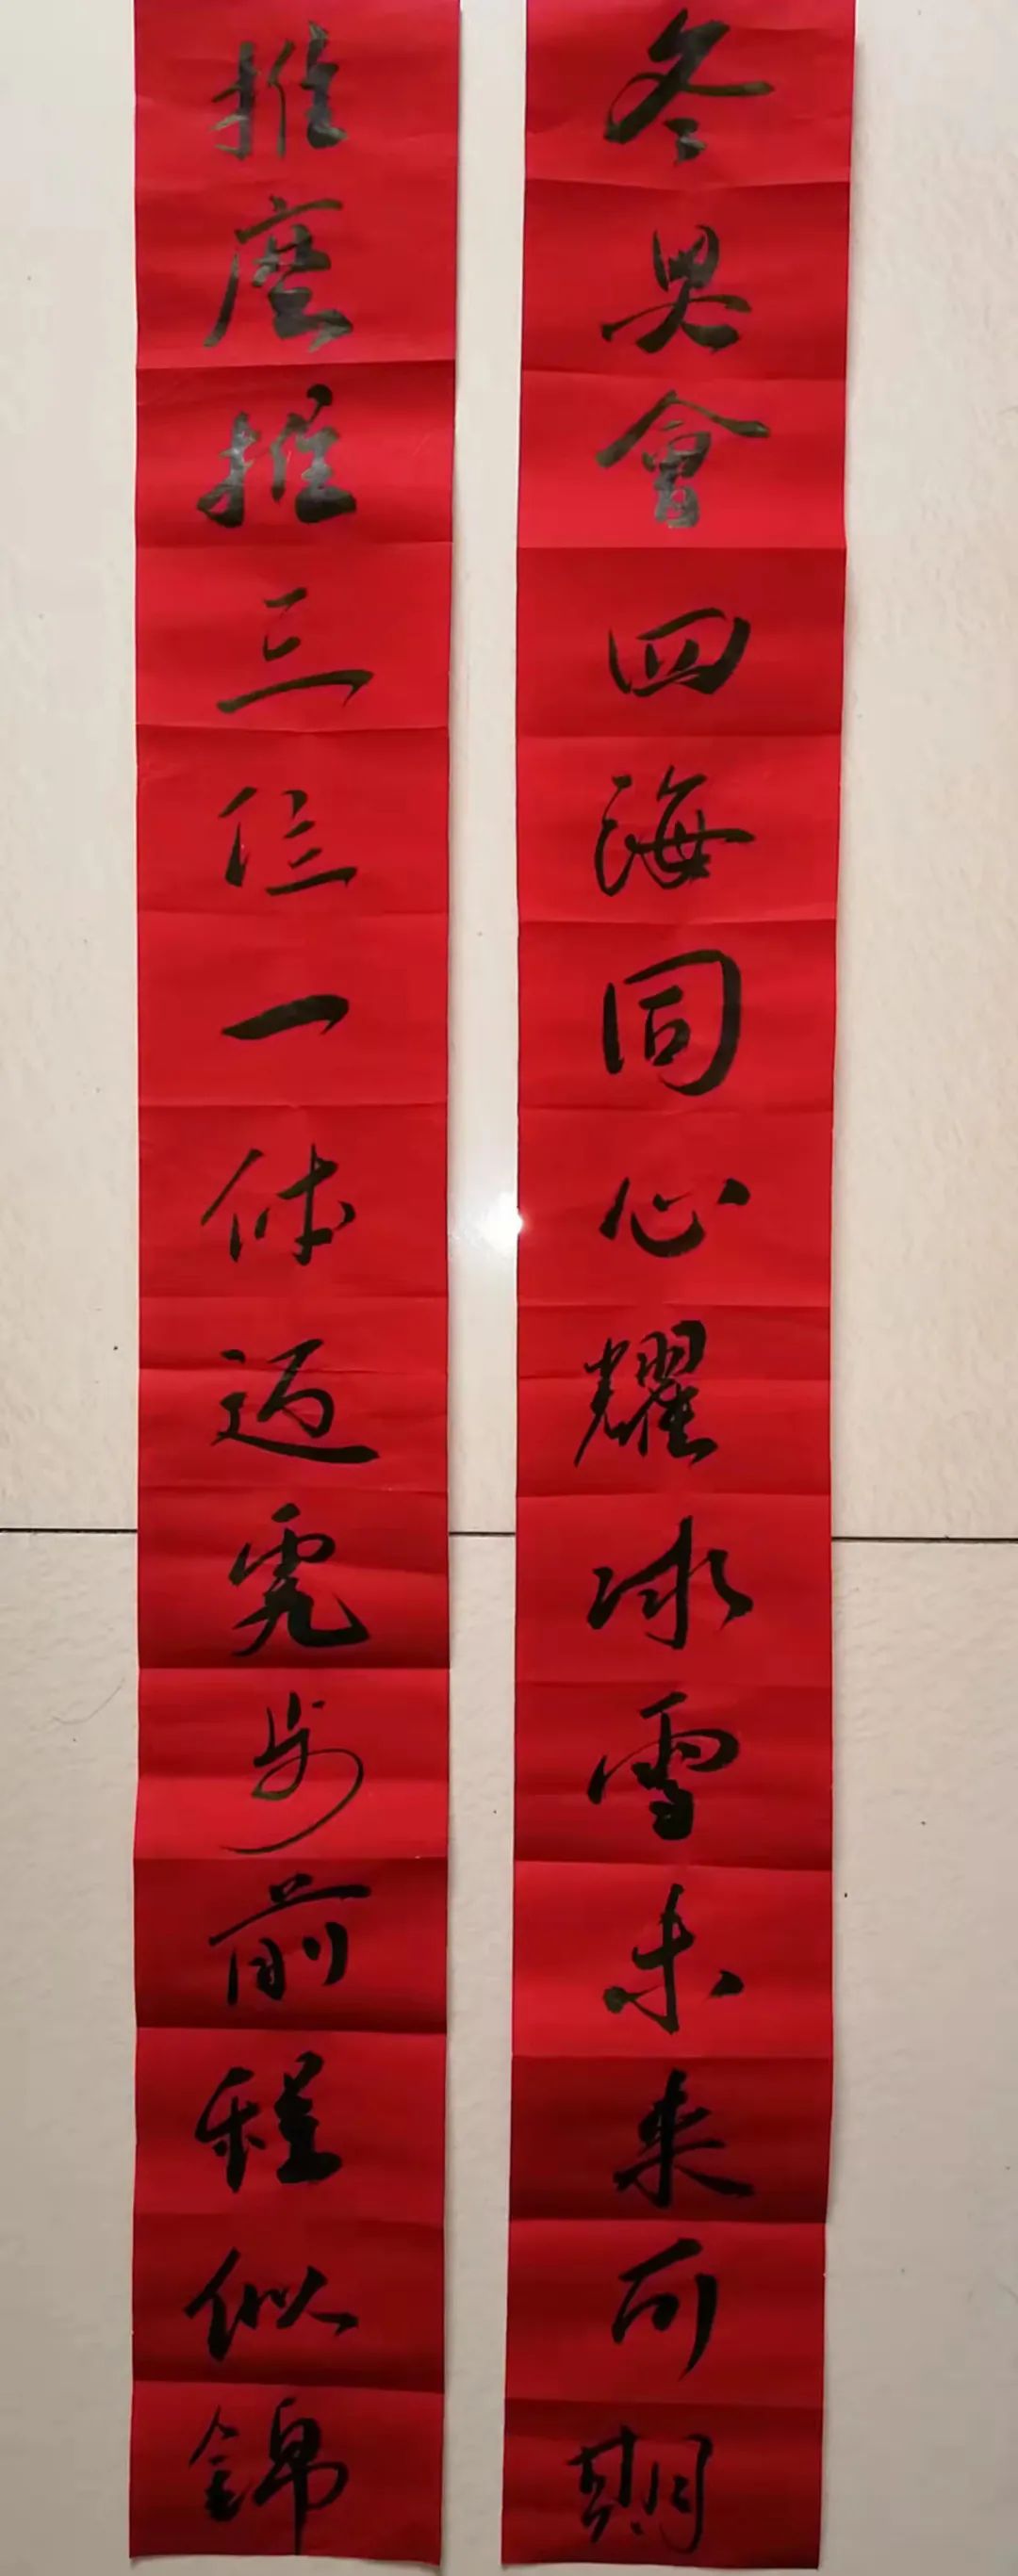 冬奥會四海同心耀冰雪未来可期
推麼推三位一体迈虎步前程似錦